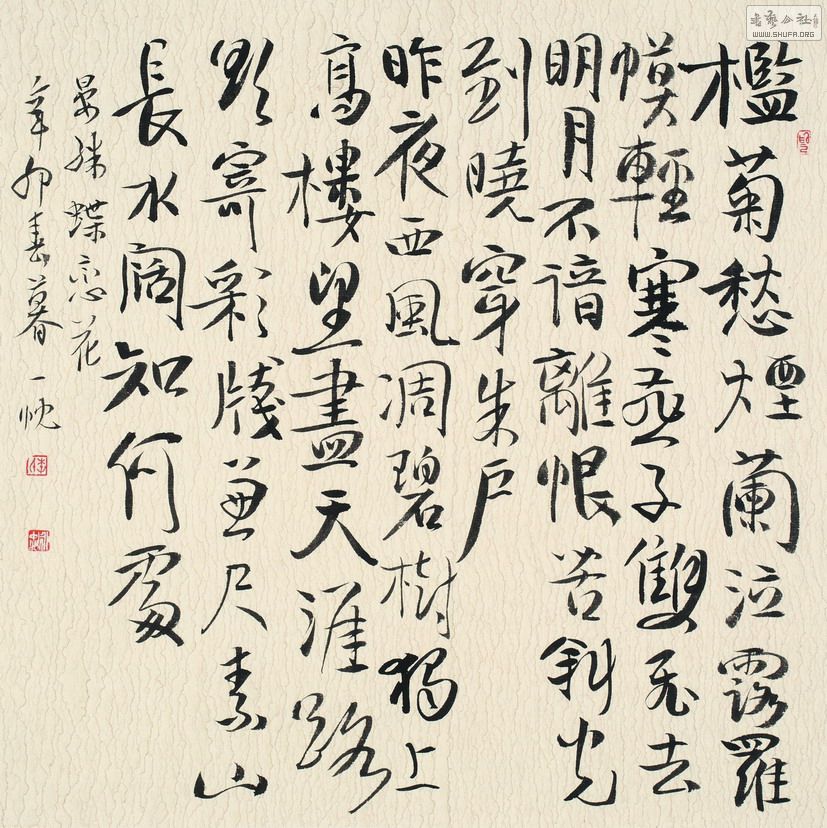 檻菊愁煙蘭泣露羅
幙輕寒燕子雙飛去
明月不諳離恨苦斜光
到曉穿朱戶
昨夜西風凋碧樹獨上
高樓望盡天涯路
欲寄彩牋兼尺素山
長水闊知何處
晏殊蝶恋花
辛卯春暮一忱
書藝公社
WWW.SHUFA.ORG